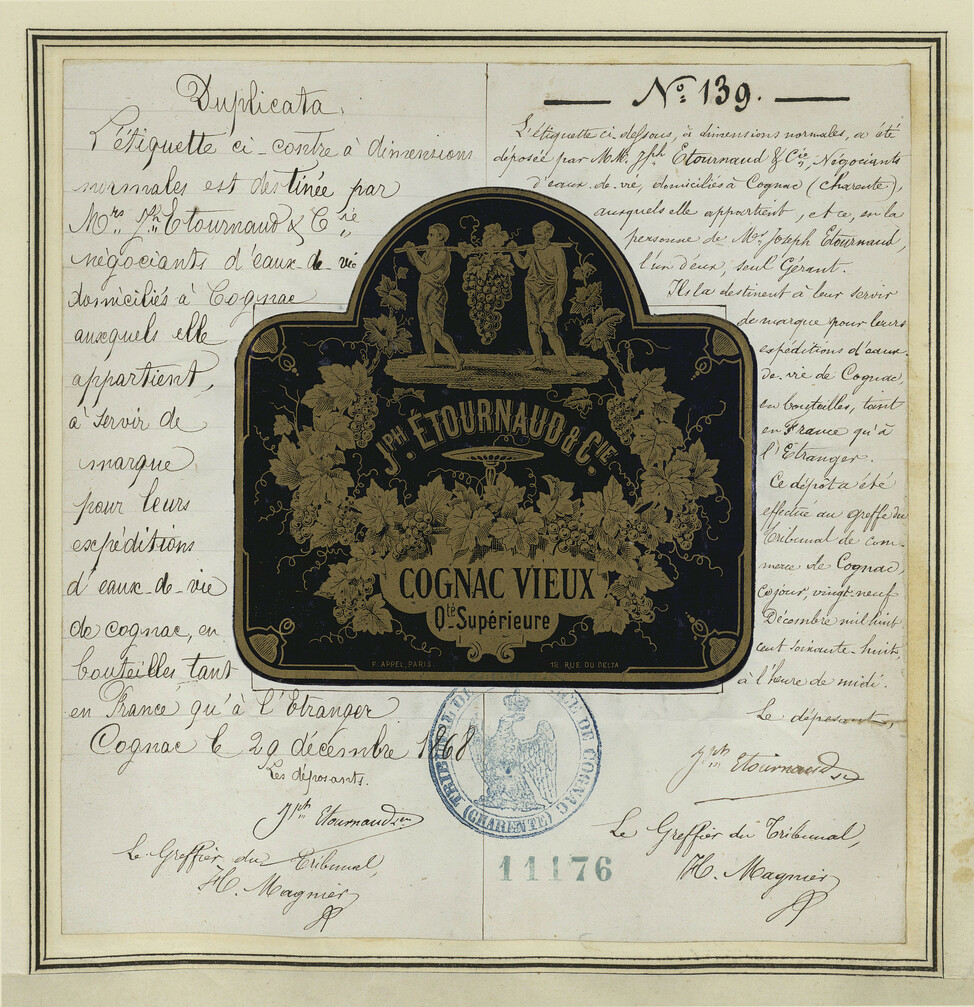 Duplicata.
L'étiquette ci-contre à dimensions
normales est destinée par
Mrs. Jph. Etournaud & Cie
négociants d'eaux-de-vie
domiciliés à Cognac
auxquels elle
appartient,
à servir de
marque
pour leurs
expéditions
d'eaux-de-vie
de cognac, en
bouteilles tant
en France qu'à l'Etranger
Cognac le 29 décembre 1868
Les déposants.
Jph Etournaud & Cie
Le Greffier du Tribunal,
H. Magnier
No. 139.
L'étiquette ci-dessous, à dimensions normales, a été
déposée par M.M. Jph Etournaud & Cie, Négociants
d'eaux-de-vie, domiciliés à Cognac (Charente),
auxquels elle appartient, et ce, en la
personne de Mr. Joseph Etournaud,
l'un d'eux, seul Gérant.
Ils la destinent à leur servir
de marque pour leurs
expéditions d'eaux-
de-vie de Cognac,
en bouteilles, tant
en France qu'à
l'Etranger.
Ce dépôt a été
effectué au greffe du
Tribunal de com-
merce de Cognac,
ce jour, vingt-neuf
Décembre mil huit
cent soixante-huit,
à l'heure de midi.
Le déposant,
Jph Etournaud
Le Greffier du Tribunal,
H. Magnier
JPH. ÉTOURNAUD & CIE
COGNAC VIEUX
Qté Supérieure
F. APPEL, PARIS
12, RUE DU DELTA
TRIBUNAL DE COMMERCE DE COGNAC
(CHARENTE)
11176